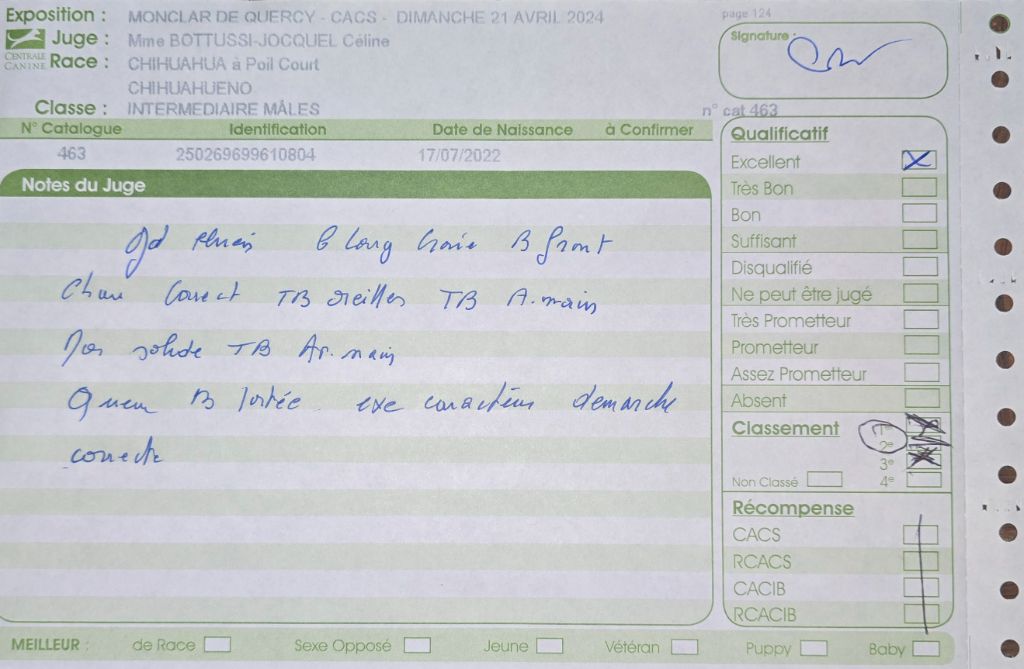 Exposition : MONCLAR DE QUERCY - CACS - DIMANCHE 21 AVRIL 2024
page 124
Juge : Mme BOTTUSSI-JOCQUEL Céline
Signature :
CENTRALE CANINE
Race : CHIHUAHUA à Poil Court
CHIHUAHUENO
Classe : INTERMEDIAIRE MÂLES
n° cat 463
N° Catalogue Identification Date de Naissance à Confirmer
463 250269699610804 17/07/2022
Notes du Juge
B long B front
correct TB oreilles TB A. main
Dos solide TB Ar. main
Queue B portée exc caractère demarche
correcte
Qualificatif
Excellent X
Très Bon
Bon
Suffisant
Disqualifié
Ne peut être jugé
Très Prometteur
Prometteur
Assez Prometteur
Absent
Classement
1er
2e
3e
Non Classé 4e
Récompense
CACS
RCACS
CACIB
RCACIB
MEILLEUR : de Race Sexe Opposé Jeune Vétéran Puppy Baby